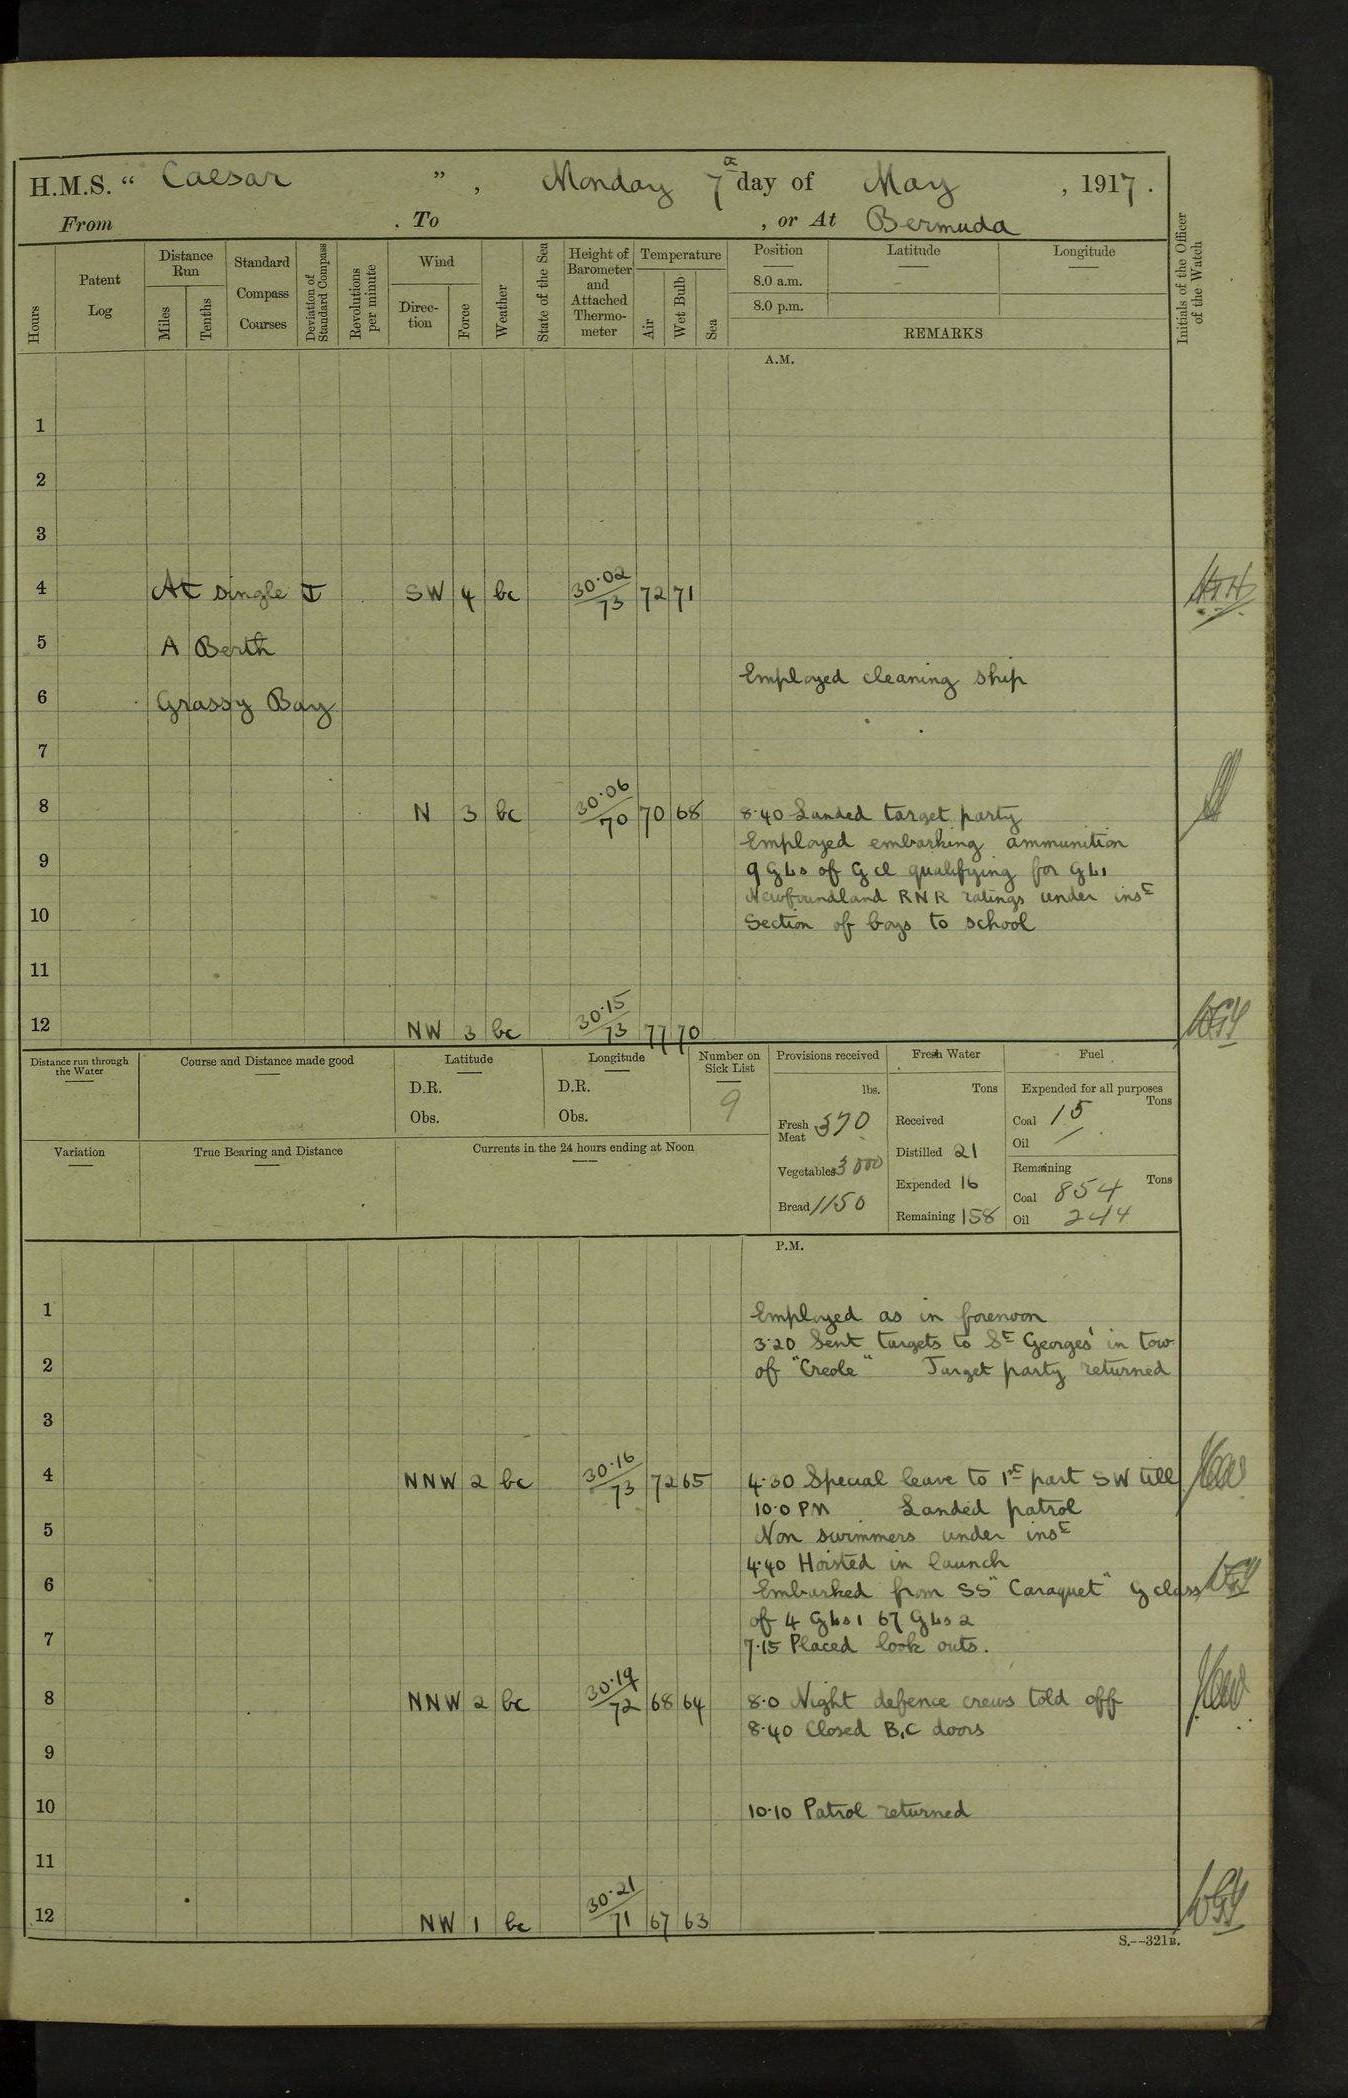 H.M.S. “ Caesar ” , Monday 7th day of May , 1917 .
From . To , or At Bermuda
Hours
Patent Log
Distance Run
Miles
Tenths
Standard Compass Courses
Deviation of Standard Compass
Revolutions per minute
Wind
Direc-tion
Force
Weather
State of the Sea
Height of Barometer and Attached Thermo-meter
Temperature
Air
Wet Bulb
Sea
Position
8.0 a.m.
8.0 p.m.
Latitude
Longitude
REMARKS
Initials of the Officer of the Watch
A.M.
1
2
3
4 At single SW 4 bc 30.02/73 72 71
5 A Berth
Employed cleaning ship
6 Grassy Bay
7
8 N 3 bc 30.06/70 70 68 8.40 Landed target party
Employed embarking ammunition
9
9 GLs of G cl qualifying for GL1
Newfoundland RNR ratings under inst
10
Section of boys to school
11
12 NW 3 bc 30.15/73 77 70
Distance run through the Water
Course and Distance made good
Latitude
D.R.
Obs.
Longitude
D.R.
Obs.
Number on Sick List
9
Variation
True Bearing and Distance
Currents in the 24 hours ending at Noon
Provisions received
lbs.
Fresh Meat 370
Vegetables 3000
Bread 1150
Fresh Water
Tons
Received
Distilled 21
Expended 16
Remaining 158
Fuel
Expended for all purposes
Tons
Coal 15
Oil /
Remaining
Tons
Coal 854
Oil 244
P.M.
1
Employed as in forenoon
3.20 Sent targets to St Georges' in tow
2 of "Creole" Target party returned
3
4 NNW 2 bc 30.16/73 72 65 4.30 Special leave to 1st part SW till
10.0 PM Landed patrol
5 Non swimmers under inst
4.40 Hoisted in launch
6 Embarked from SS "Caraquet" G class
of 4 GLs1 67 GLs2
7 7.15 Placed look outs.
8 NNW 2 bc 30.19/72 68 64 8.0 Night defence crews told off
8.40 Closed B,C doors
9
10 10.10 Patrol returned
11
12 NW 1 bc 30.21/71 67 63
S.--321B.